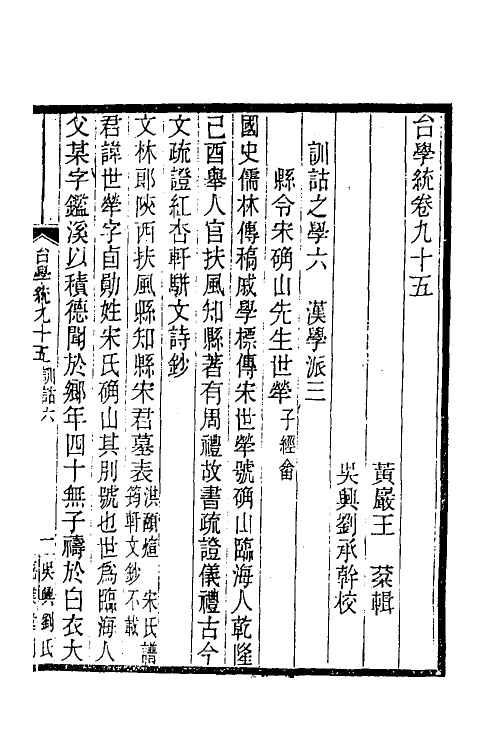 台學統卷九十五
黃巖王 棻輯
吳興劉承幹校
訓詁之學六 漢學派三
縣令宋确山先生世犖子經畬
國史儒林傳稿戚學標傳宋世犖號确山臨海人乾隆
己酉舉人官扶風知縣著有周禮故書疏證儀禮古今
文疏證紅杏軒駢文詩鈔
文林郎陝西扶風縣知縣宋君墓表洪頤煊 宋氏譜
筠軒文鈔不載
君諱世犖字卣勛姓宋氏确山其別號也世爲臨海人
父某字鑑溪以積德聞於鄉年四十無子禱於白衣大
台學統九十五 訓詁六
一 吳興劉氏